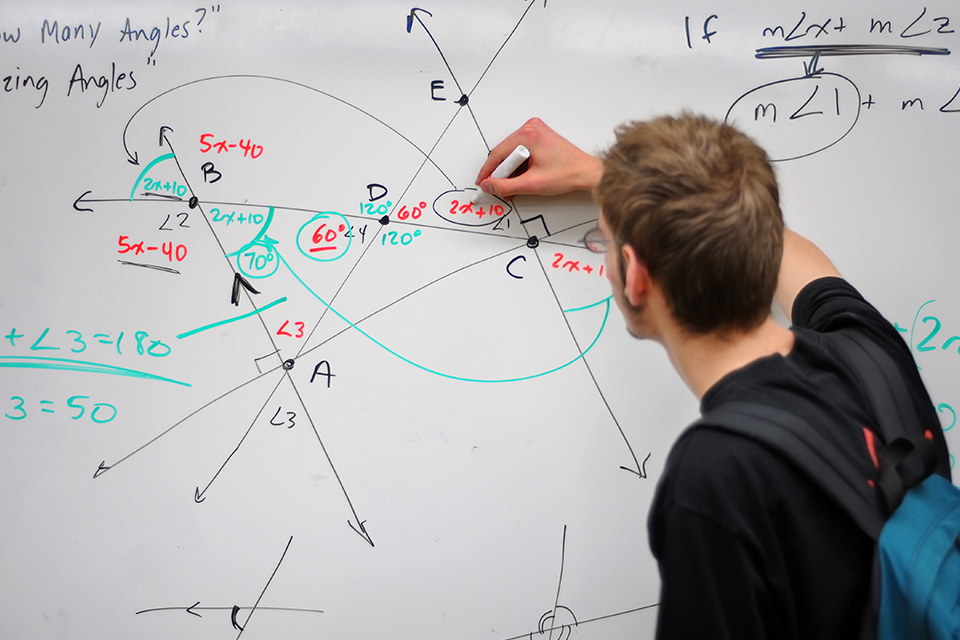 ow Many Angles?"
zing Angles"
If m∠x + m∠z
m∠1 + m∠
E
5x-40
B
2x+10
∠2
2x+10
D
120°
60°
2x+10
∠1
60°
∠4
120°
5x-40
70°
C
2x+1
∠3
+∠3=180
A
3=50
∠3
(2x